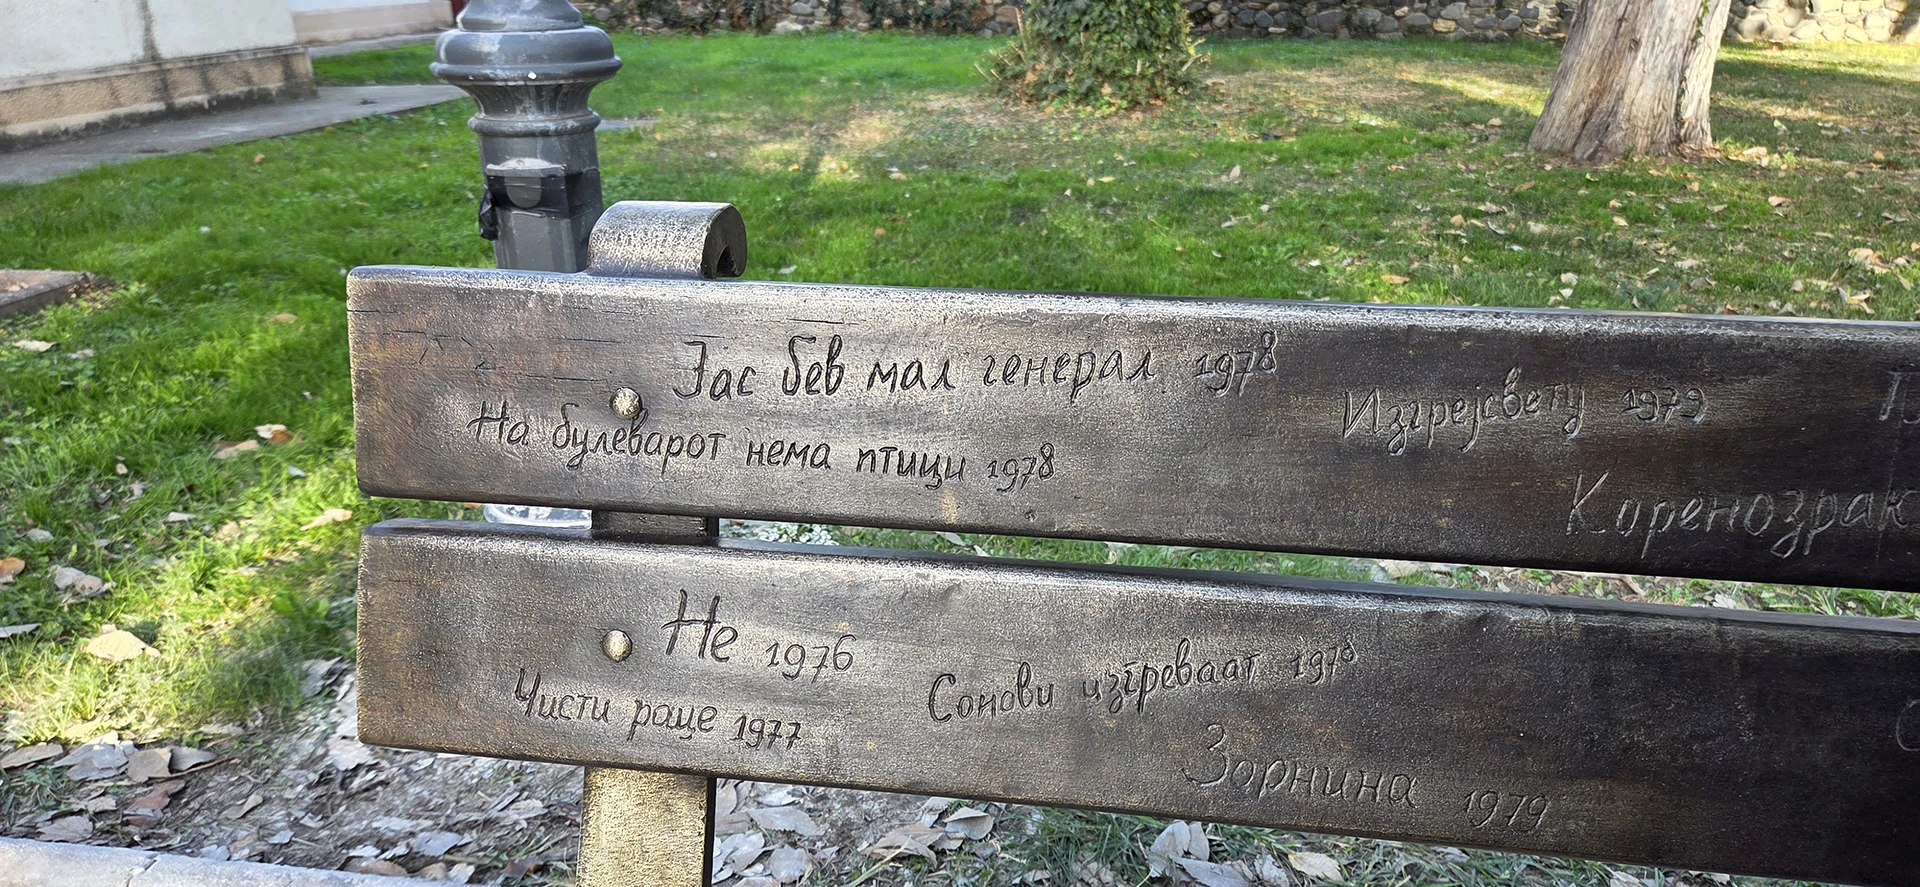 Јас бев мал генерал 1978
На булеварот нема птици 1978
Изгрејсвету 1979
Корензрак
Не 1976
Чисти раце 1977
Сонови изгреваат 1978
Зорнина 1979